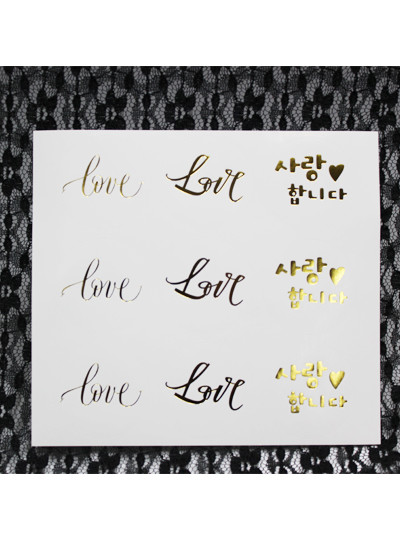 love Love 사랑♥
합니다
love Love 사랑♥
합니다
love Love 사랑♥
합니다